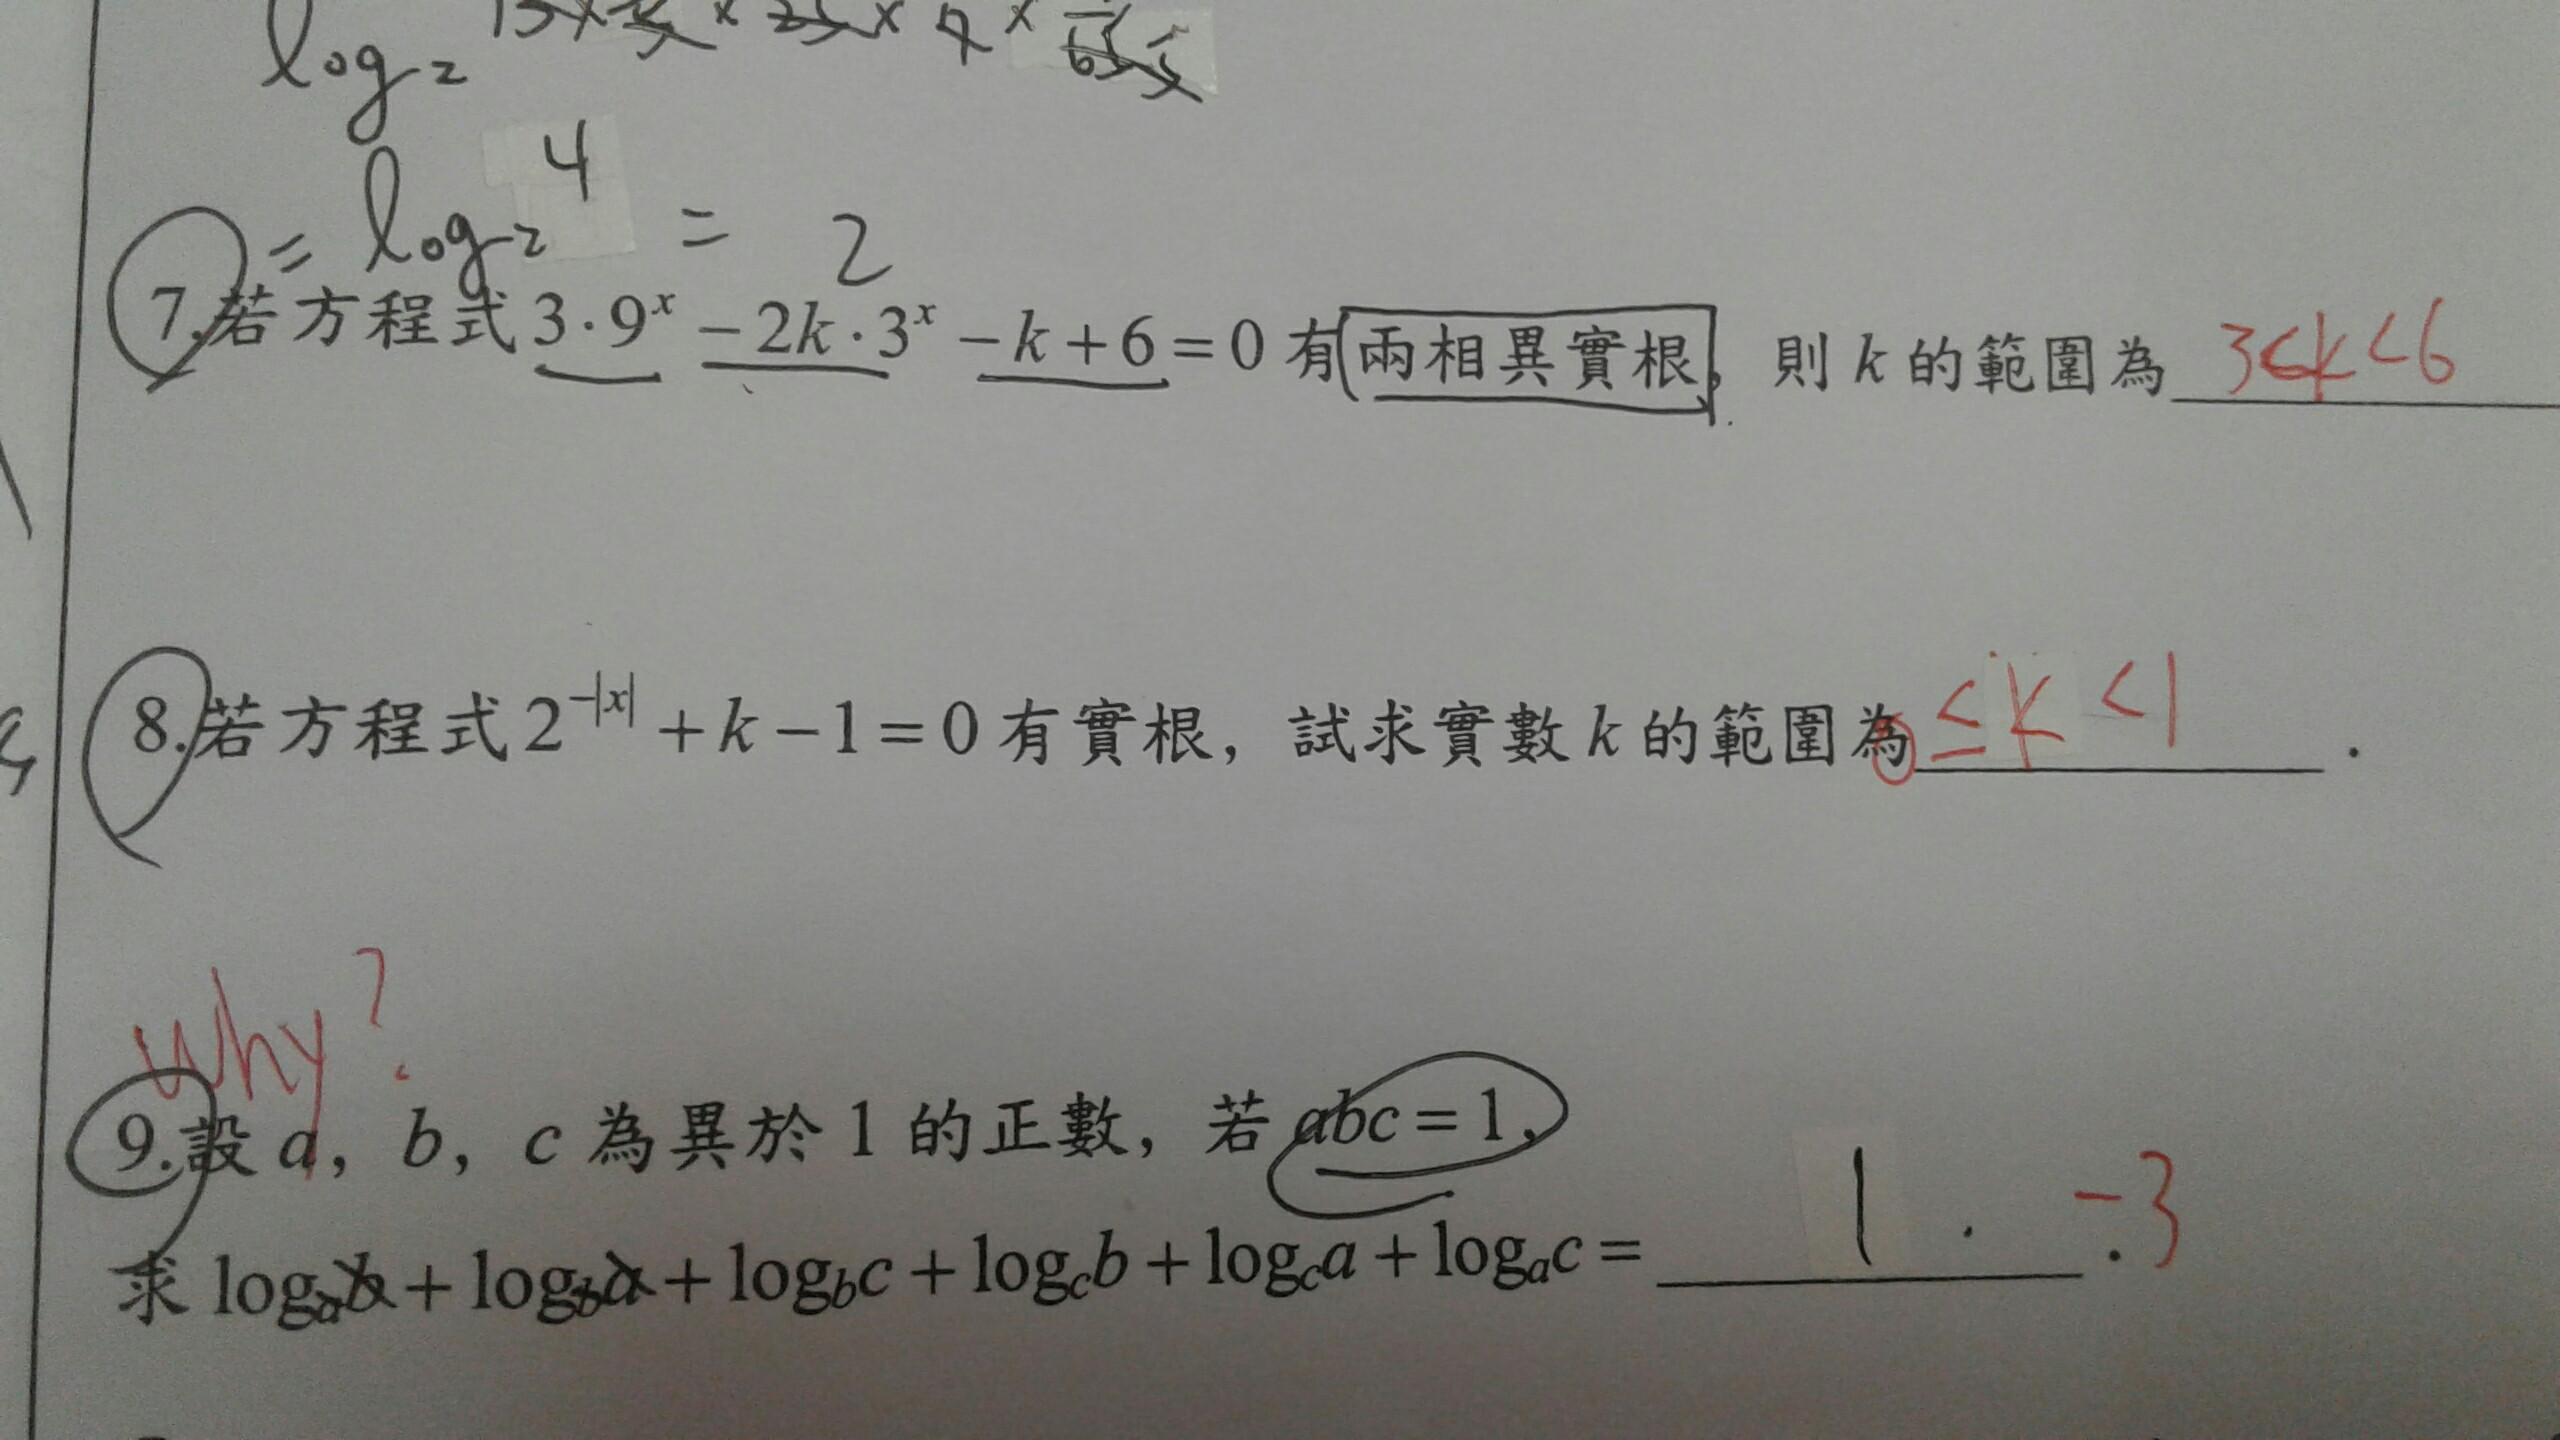 log₂ 4
= log₂ 4 = 2
7.若方程式 3·9ˣ − 2k·3ˣ − k + 6 = 0 有兩相異實根, 則 k 的範圍為 3<k<6
8.若方程式 2^{-|x|} + k − 1 = 0 有實根, 試求實數 k 的範圍為 0 ≤ k < 1 .
Why?
9.設 a, b, c 為異於 1 的正數, 若 abc = 1,
求 logₐb + log_b a + log_b c + log_c b + log_c a + logₐc = 1 . −3